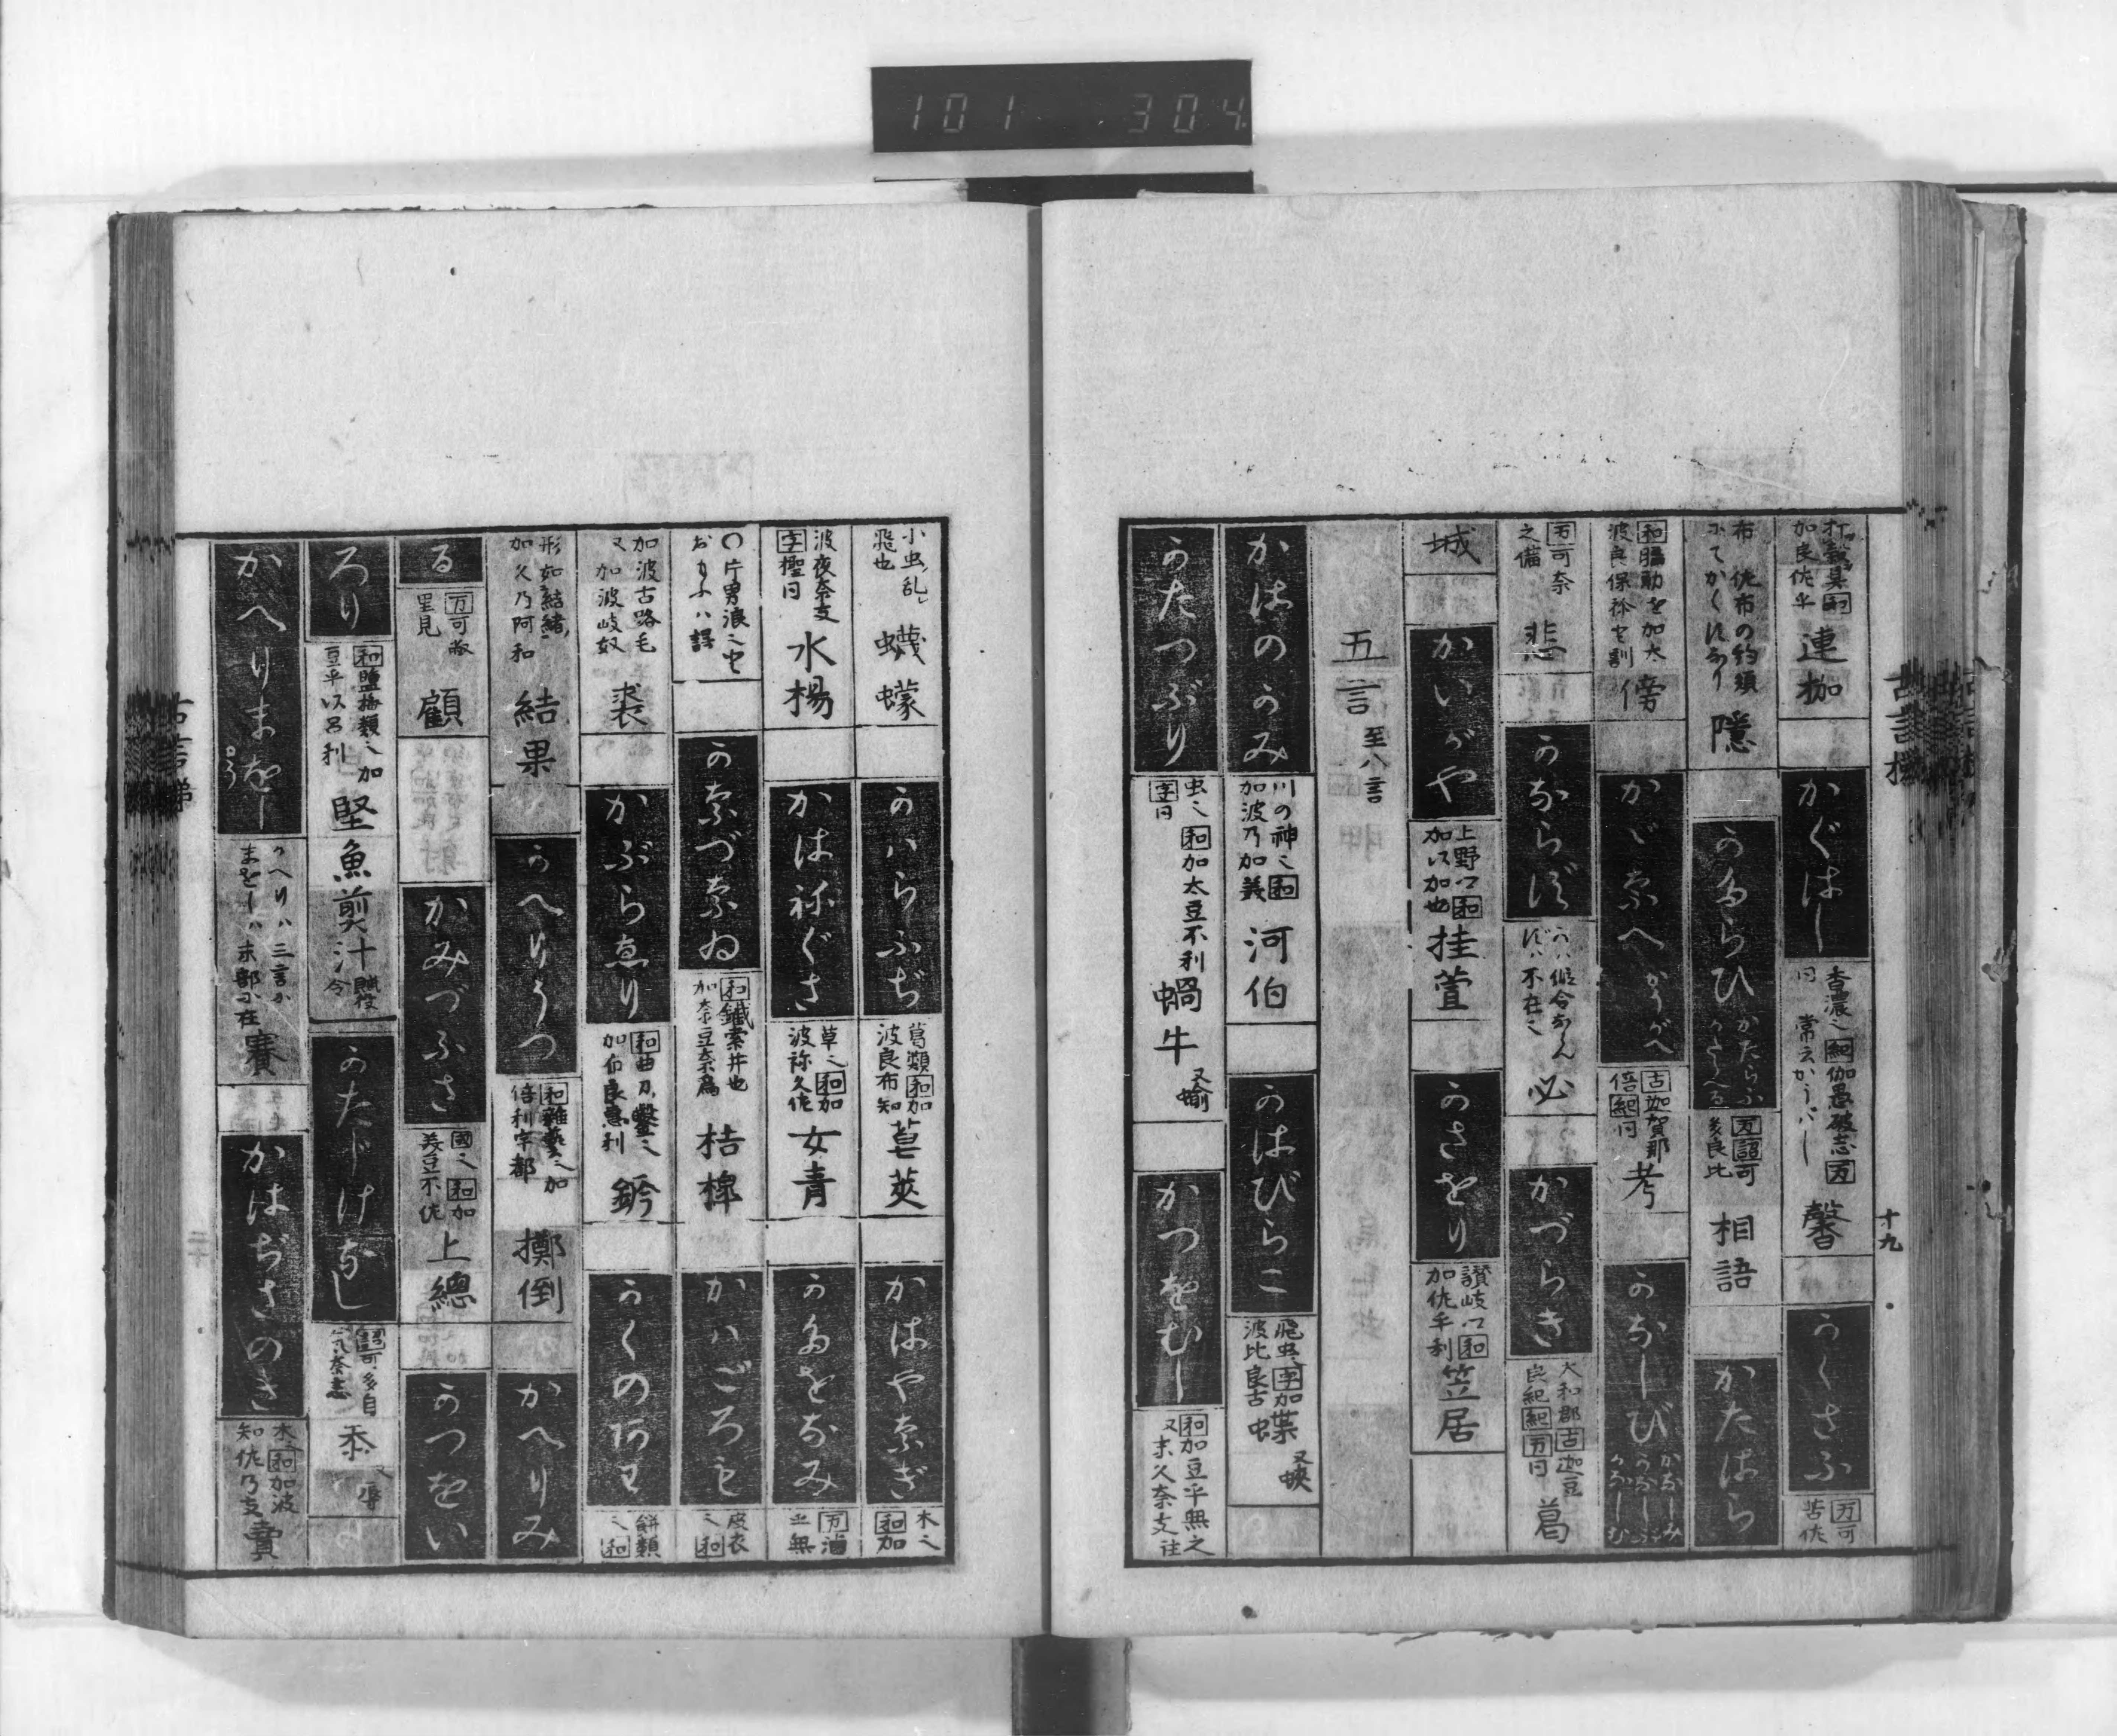 101 304
打穀具和
加良佐乎 連枷 かぐはし 香濃之紀伽愚破志万
同 常云かうバし 馨 かくさふ 万可
苦佐
布 佐布の約須
にてかくはなり 隠 かたらひ かたらふ かたらへる 万謌可
多良比 相語 かたはら
和臑肋を加太
波良保祢と訓 傍 かゞなへ かうがへ 古迦賀那
倍紀同 考 かなしび かなしみ かなしぶ かなしむ
万可奈
之備 悲 かならず ず、不在之 必 かづらき 大和郡古迦豆
良紀紀万同 葛
城 かいがや 上野ツ和
加以加也 挂萱 かさをり 讃岐ツ和
加佐乎利 笠居
五言 至八言
かはのかみ 川の神之和
加波乃加美 河伯 かはびらこ 飛虫字加
波比良古 蝶 又蛺
かたつぶり 虫之和加太豆不利
字同 蝸牛 又蝓 かつをむし 和加豆乎無之
又末久奈支注
十九
小虫乱
飛也 蠛蠓 かハらふぢ 葛類和加
波良布知 皂莢 かはやなぎ 木之
和加
波夜奈支
字檉同 水楊 かはねぐさ 草之和加
波祢久佐 女青 かたをなみ 万滷
乎無
〇片男浪之と
おもふハ誤 かなづなゐ 和鐵索井也
加奈豆奈為 桔槹 かハごろも 皮衣
之和
加波古路毛
又加波岐奴 裘 かぶらゑり 和曲刀鑿之
加布良恵利 錺 かくのあわ 餅類
之和
形如結緒
加久乃阿和 結果 かへりうつ 和雑藝之加
倍利宇都 擲倒 かへりみ
る 万可敝
里見 顧 かみづふさ 國之和加
美豆不佐 上總 かつをい
ろり 和塩梅類之加
豆乎以呂利 堅魚煎汁 賦役令 かたじけなし 謌可多自
気奈志 忝 又辱
かへりまをし まうし かへりハ三言か
まをしハ末部に在 賽 かはぢさのき 木之和加波
知佐乃支 賣